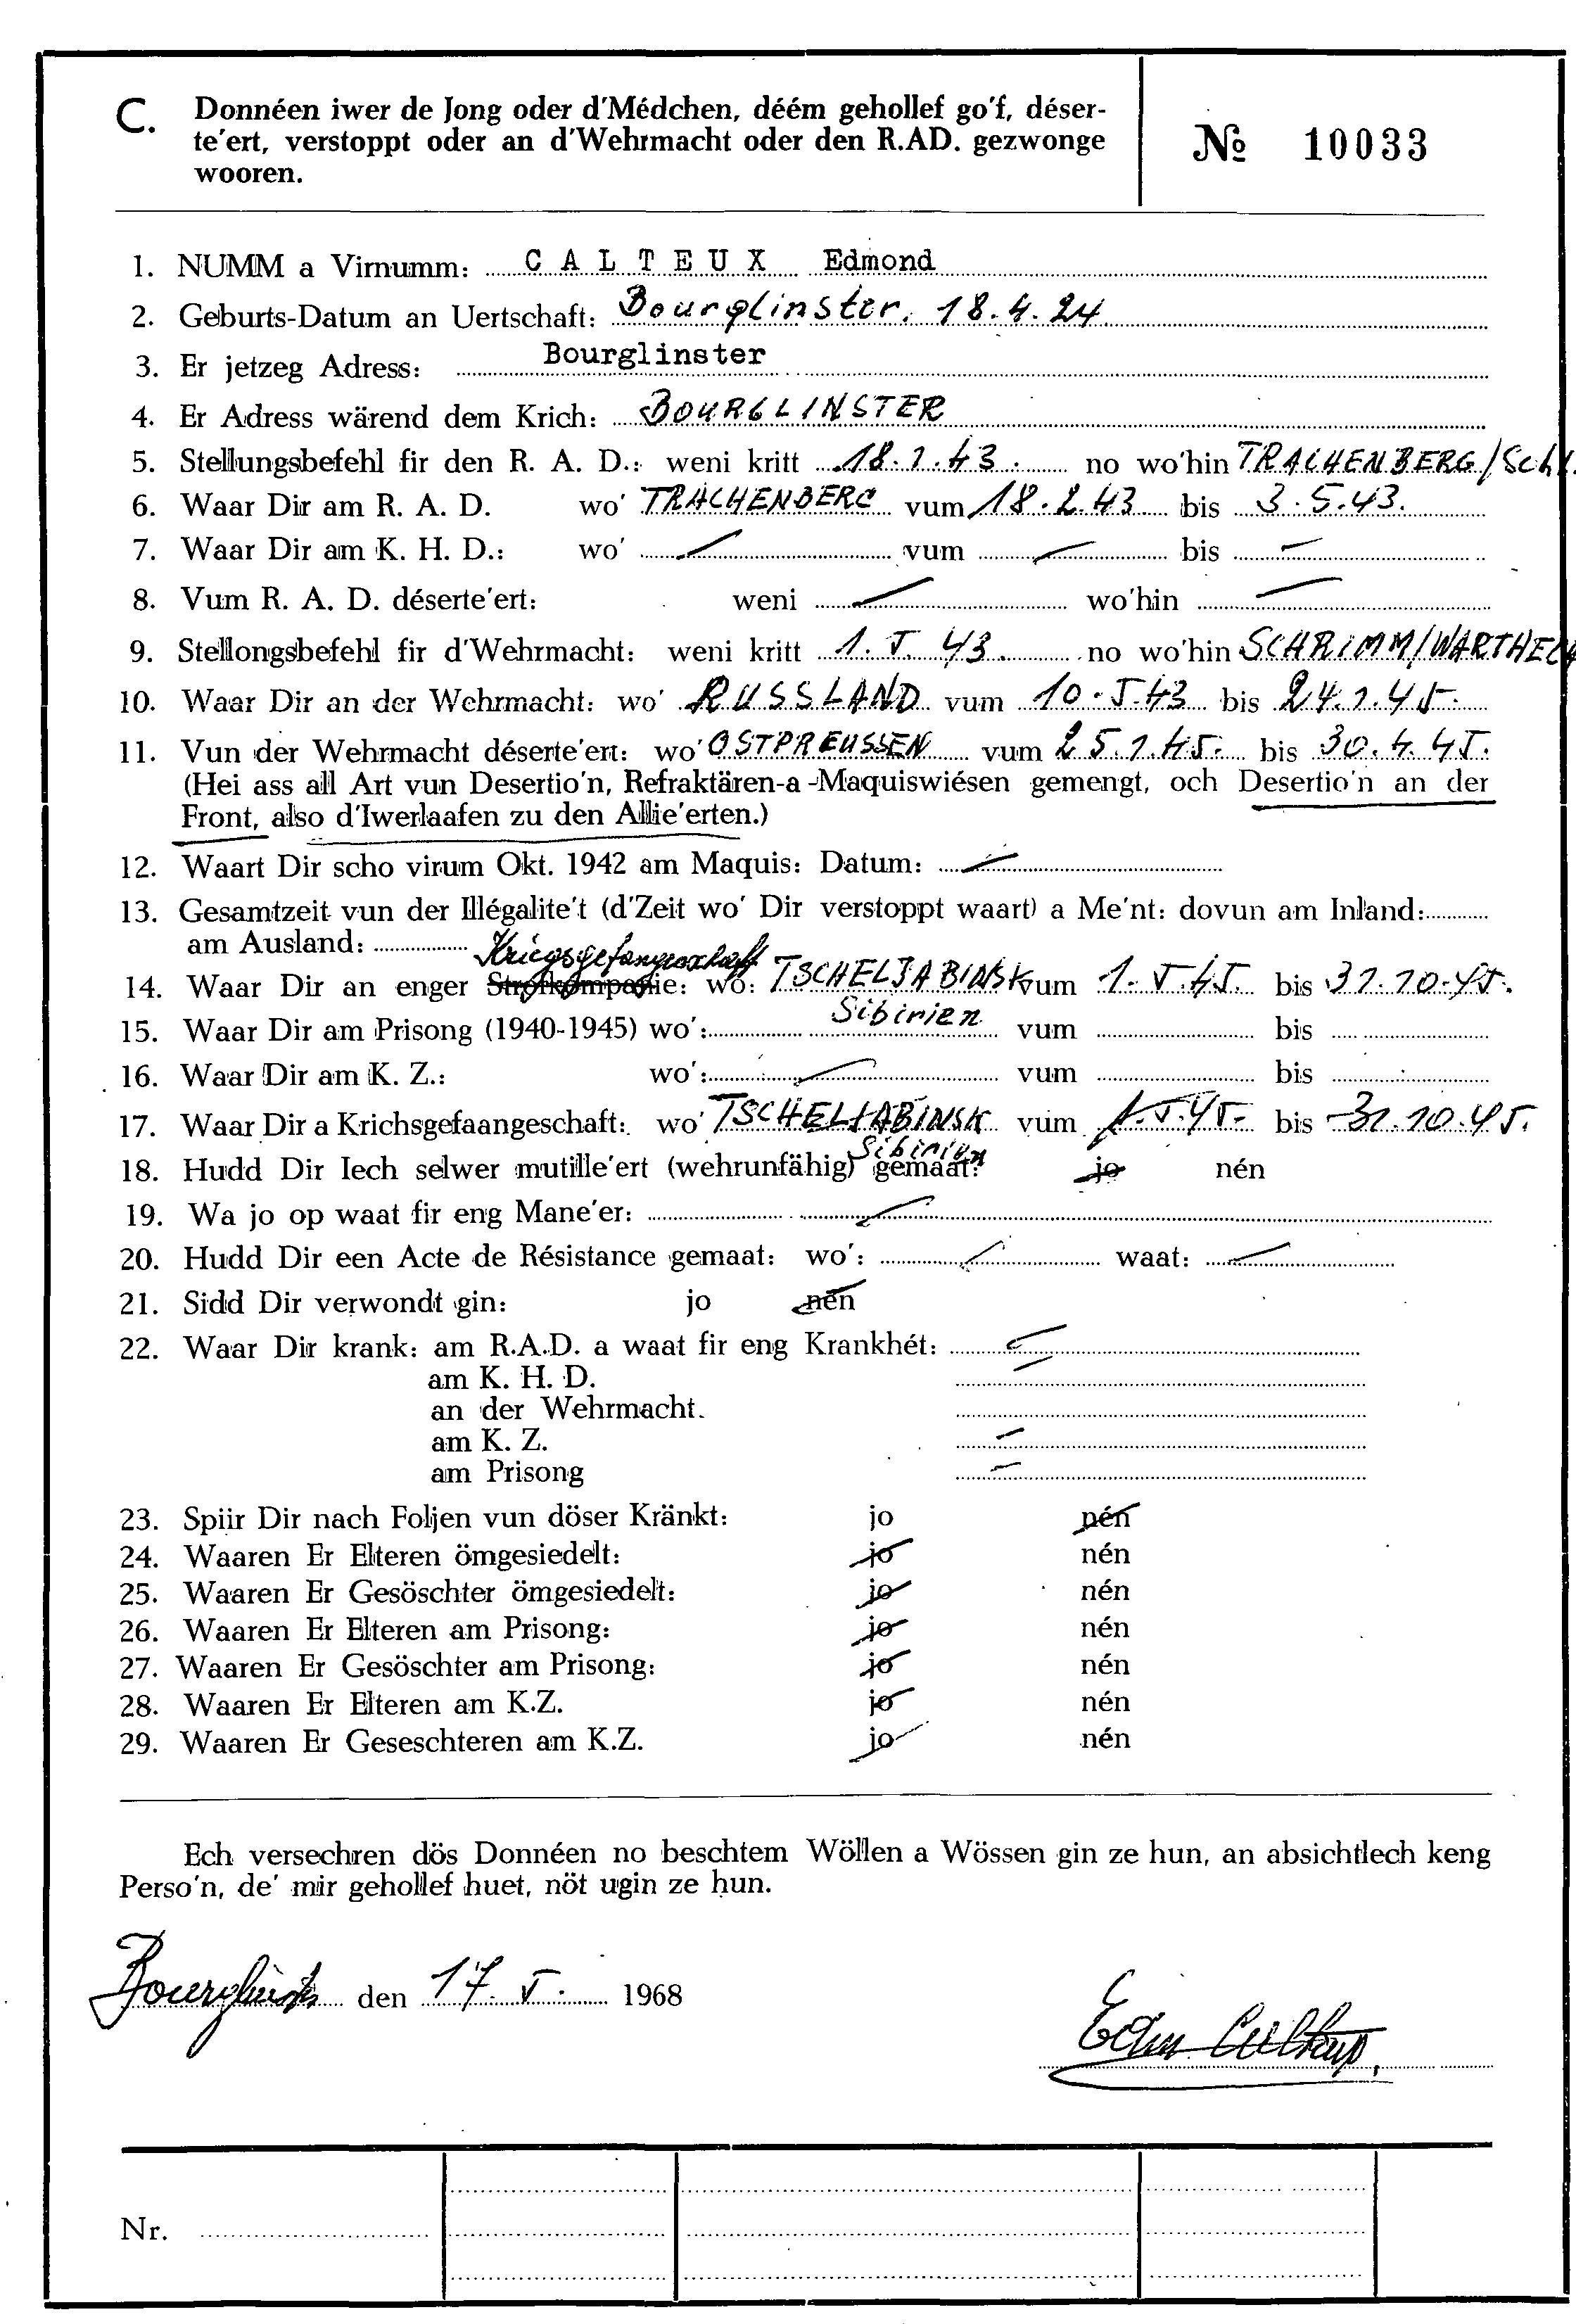 C. Donnéen iwer de Jong oder d'Médchen, déém gehollef go'f, déser-
te'ert, verstoppt oder an d'Wehrmacht oder den R.AD. gezwonge
wooren.
№ 10033
1. NUMM a Virnumm: CALTEUX Edmond
2. Geburts-Datum an Uertschaft: Bourglinster, 18.4.24
3. Er jetzeg Adress: Bourglinster
4. Er Adress wärend dem Krich: BOURGLINSTER
5. Stellungsbefehl fir den R. A. D.: weni kritt 18.1.43. no wo'hin TRACHENBERG/Schl.
6. Waar Dir am R. A. D. wo' TRACHENBERG vum 18.2.43 bis 3.5.43.
7. Waar Dir am K. H. D.: wo' — vum — bis —
8. Vum R. A. D. déserte'ert: weni — wo'hin —
9. Stellongsbefehl fir d'Wehrmacht: weni kritt 1.V.43. no wo'hin SCHRIMM/WARTHEGA
10. Waar Dir an der Wehrmacht: wo' RUSSLAND vum 10.V.43 bis 24.1.45.
11. Vun der Wehrmacht déserte'ert: wo' OSTPREUSSEN vum 25.1.45. bis 30.4.45.
(Hei ass all Art vun Desertio'n, Refraktären-a-Maquiswiésen gemengt, och Desertio'n an der
Front, also d'Iwerlaafen zu den Allie'erten.)
12. Waart Dir scho virum Okt. 1942 am Maquis: Datum: —
13. Gesamtzeit vun der Illégalite't (d'Zeit wo' Dir verstoppt waart) a Me'nt: dovun am Inland:
am Ausland:
Kriegsgefangenschaft
14. Waar Dir an enger Strofkompanie: wo: TSCHELJABINSK vum 1.V.45. bis 31.10.45.
Sibirien
15. Waar Dir am Prisong (1940-1945) wo': vum bis
16. Waar Dir am K. Z.: wo': — vum bis
17. Waar Dir a Krichsgefaangeschaft: wo' TSCHELJABINSK vum 1.V.45. bis 31.10.45.
Sibirien
18. Hudd Dir Iech selwer mutille'ert (wehrunfähig) gemaat? jo nén
19. Wa jo op waat fir eng Mane'er: —
20. Hudd Dir een Acte de Résistance gemaat: wo': — waat: —
21. Sidd Dir verwondt gin: jo nén
22. Waar Dir krank: am R.A.D. a waat fir eng Krankhét: —
am K. H. D. —
an der Wehrmacht.
am K. Z. —
am Prisong —
23. Spiir Dir nach Foljen vun döser Kränkt: jo nén
24. Waaren Er Elteren ömgesiedelt: jo nén
25. Waaren Er Gesöschter ömgesiedelt: jo nén
26. Waaren Er Elteren am Prisong: jo nén
27. Waaren Er Gesöschter am Prisong: jo nén
28. Waaren Er Elteren am K.Z. jo nén
29. Waaren Er Geseschteren am K.Z. jo nén
Ech versechren dös Donnéen no beschtem Wöllen a Wössen gin ze hun, an absichtlech keng
Perso'n, de' mir gehollef huet, nöt ugin ze hun.
Bourglinster den 17.V. 1968
Edm. Calteux
Nr.